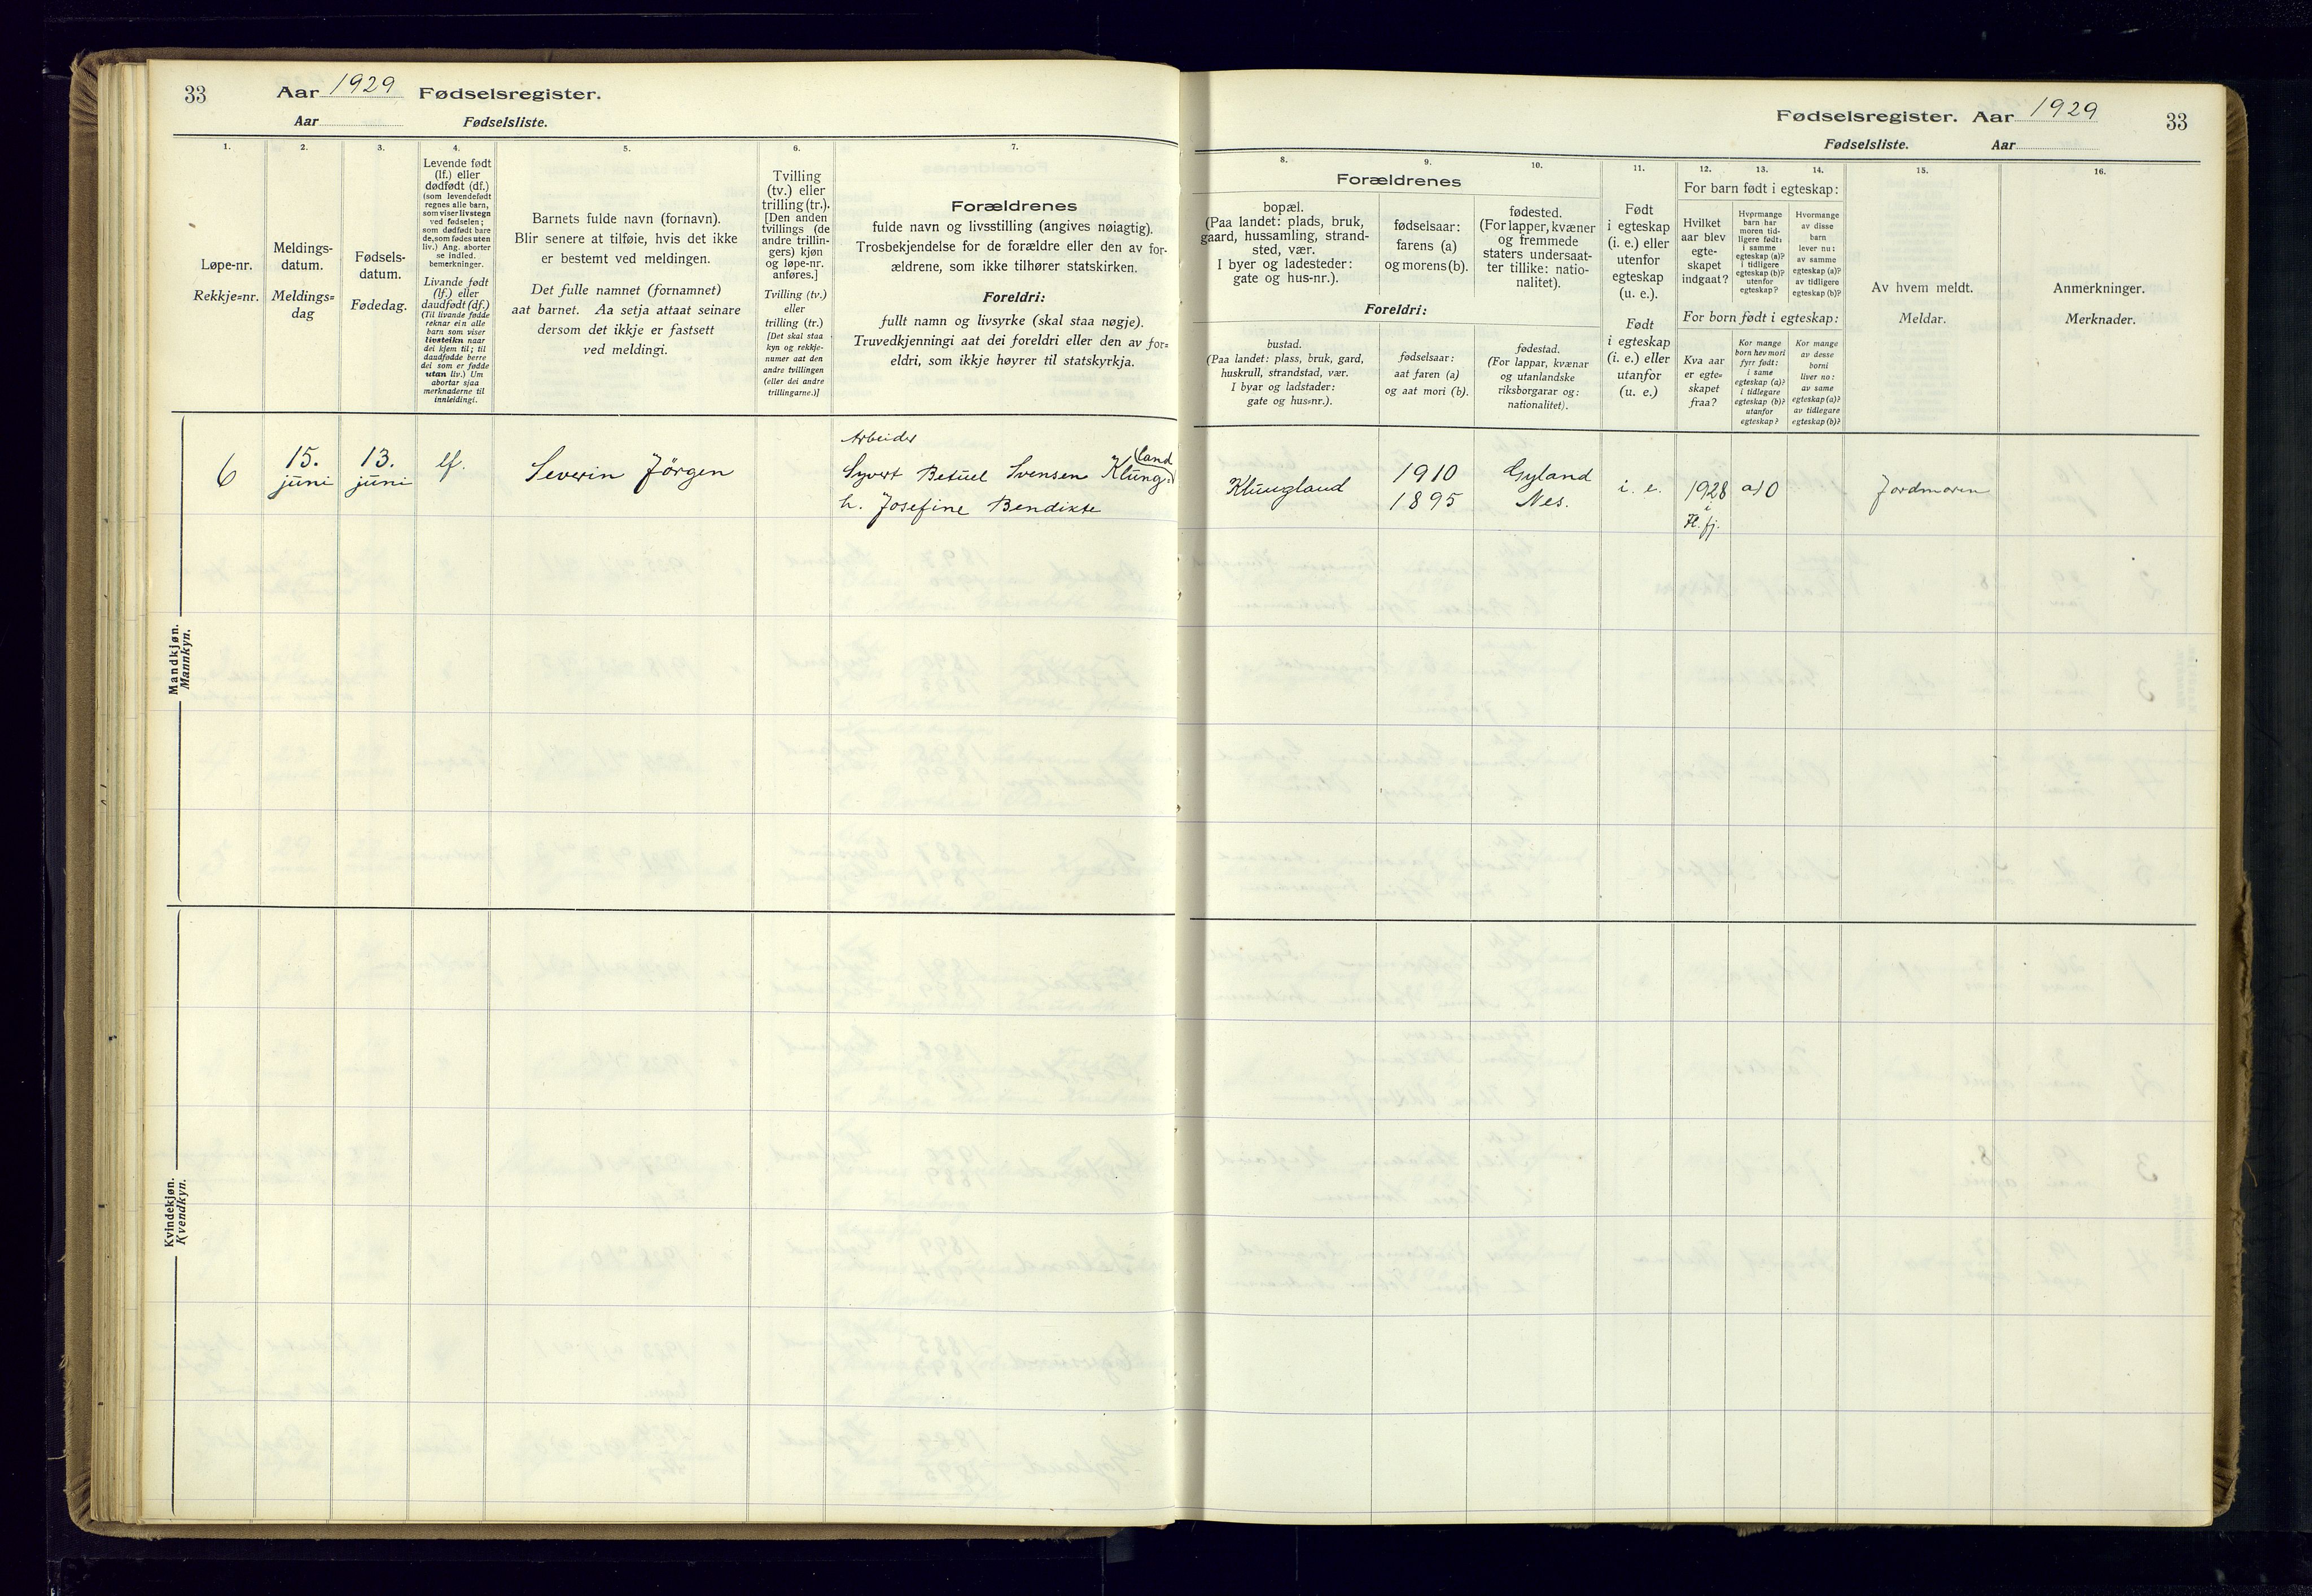 33
Aar 1929 Fødselsregister.
Aar Fødselsliste.
1.
Løpe-nr.
Rekkje=nr.
2.
Meldings-
datum.
Meldings=
dag
3.
Fødsels-
datum.
Fødedag.
4.
Levende født
(lf.) eller
dødfødt (df.)
(som levendefødt
regnes alle barn,
som viser livstegn
ved fødselen;
som dødfødt bare
de, som fødes uten
liv.) Ang. aborter
se indled.
bemerkninger.
Livande født
(lf.) eller
daudfødt (df.)
(Til livande fødde
reknar ein alle
barn som viser
livsteikn naar
dei kjem til; til
daudfødde berre
dei som er fødde
utan liv.) Um
abortar sjaa
merknaderne til
innleidingi.
5.
Barnets fulde navn (fornavn).
Blir senere at tilføie, hvis det ikke
er bestemt ved meldingen.
Det fulle namnet (fornamnet)
aat barnet. Aa setja attaat seinare
dersom det ikkje er fastsett
ved meldingi.
6.
Tvilling
(tv.) eller
trilling (tr.).
[Den anden
tvillings (de
andre trillin-
gers) kjøn
og løpe-nr.
anføres.]
Tvilling (tv.)
eller
trilling (tr.)
[Det skal staa
kyn og rekkje-
numer aat den
andre tvillingen
(eller dei andre
trillingarne.)]
7.
Forældrenes
fulde navn og livsstilling (angives nøiagtig).
Trosbekjendelse for de forældre eller den av for-
ældrene, som ikke tilhører statskirken.
Foreldri:
fullt namn og livsyrke (skal staa nøgje).
Truvedkjenningi aat dei foreldri eller den av for=
eldri, som ikkje høyrer til statskyrkja.
Mandkjøn.
Mannkyn.
6
15.
juni
13.
juni
lf.
Severin Jörgen
Arbeider
Syvert Betuel Svensen Klung=
land
h. Josefine Bendikte
Kvindekjøn.
Kvendkyn.
Fødselsregister. Aar 1929
33
Fødselsliste. Aar
Forældrenes
8.
bopæl.
(Paa landet: plads, bruk,
gaard, hussamling, strand-
sted, vær.
I byer og ladesteder:
gate og hus-nr.).
9.
fødselsaar:
farens (a)
og morens (b).
10.
fødested.
(For lapper, kvæner
og fremmede
staters undersaat-
ter tillike: natio-
nalitet).
Foreldri:
bustad.
(Paa landet: plass, bruk, gard,
huskrull, strandstad, vær.
I byar og ladstader:
gate og hus=nr.).
fødselsaar:
aat faren (a)
og aat mori (b).
fødestad.
(For lappar, kvænar
og utanlandske
riksborgarar og:
nationalitet).
11.
Født
i egteskap
(i. e.) eller
utenfor
egteskap
(u. e.).
Født
i egteskap
(i. e.) eller
utanfor
(u. e.)
12.
13.
14.
For barn født i egteskap:
Hvilket
aar blev
egte-
skapet
indgaat?
Hvormange
barn har
moren tid-
ligere født:
i samme
egteskap (a)?
i tidligere
egteskap (b)?
utenfor
egteskap?
Hvormange
av disse
barn
lever nu:
av samme
egteskap (a)?
av tidligere
egteskap (b)?
For born født i egteskap:
Kva aar
er egte=
skapet
fraa?
Kor mange
born hev mori
fyrr født:
i same
egteskap (a)?
i tidlegare
egteskap (b)?
utanfor
egteskap?
Kor mange
av desse
borni
liver no:
av same
egteskap (a)?
av tidlegare
egteskap (b)?
15.
Av hvem meldt.
Meldar.
16.
Anmerkninger.
Merknader.
Klungland
1910
1895
Gyland
Nes.
i. e.
1928
i
Fl. fj.
a) 0
Jordmoren